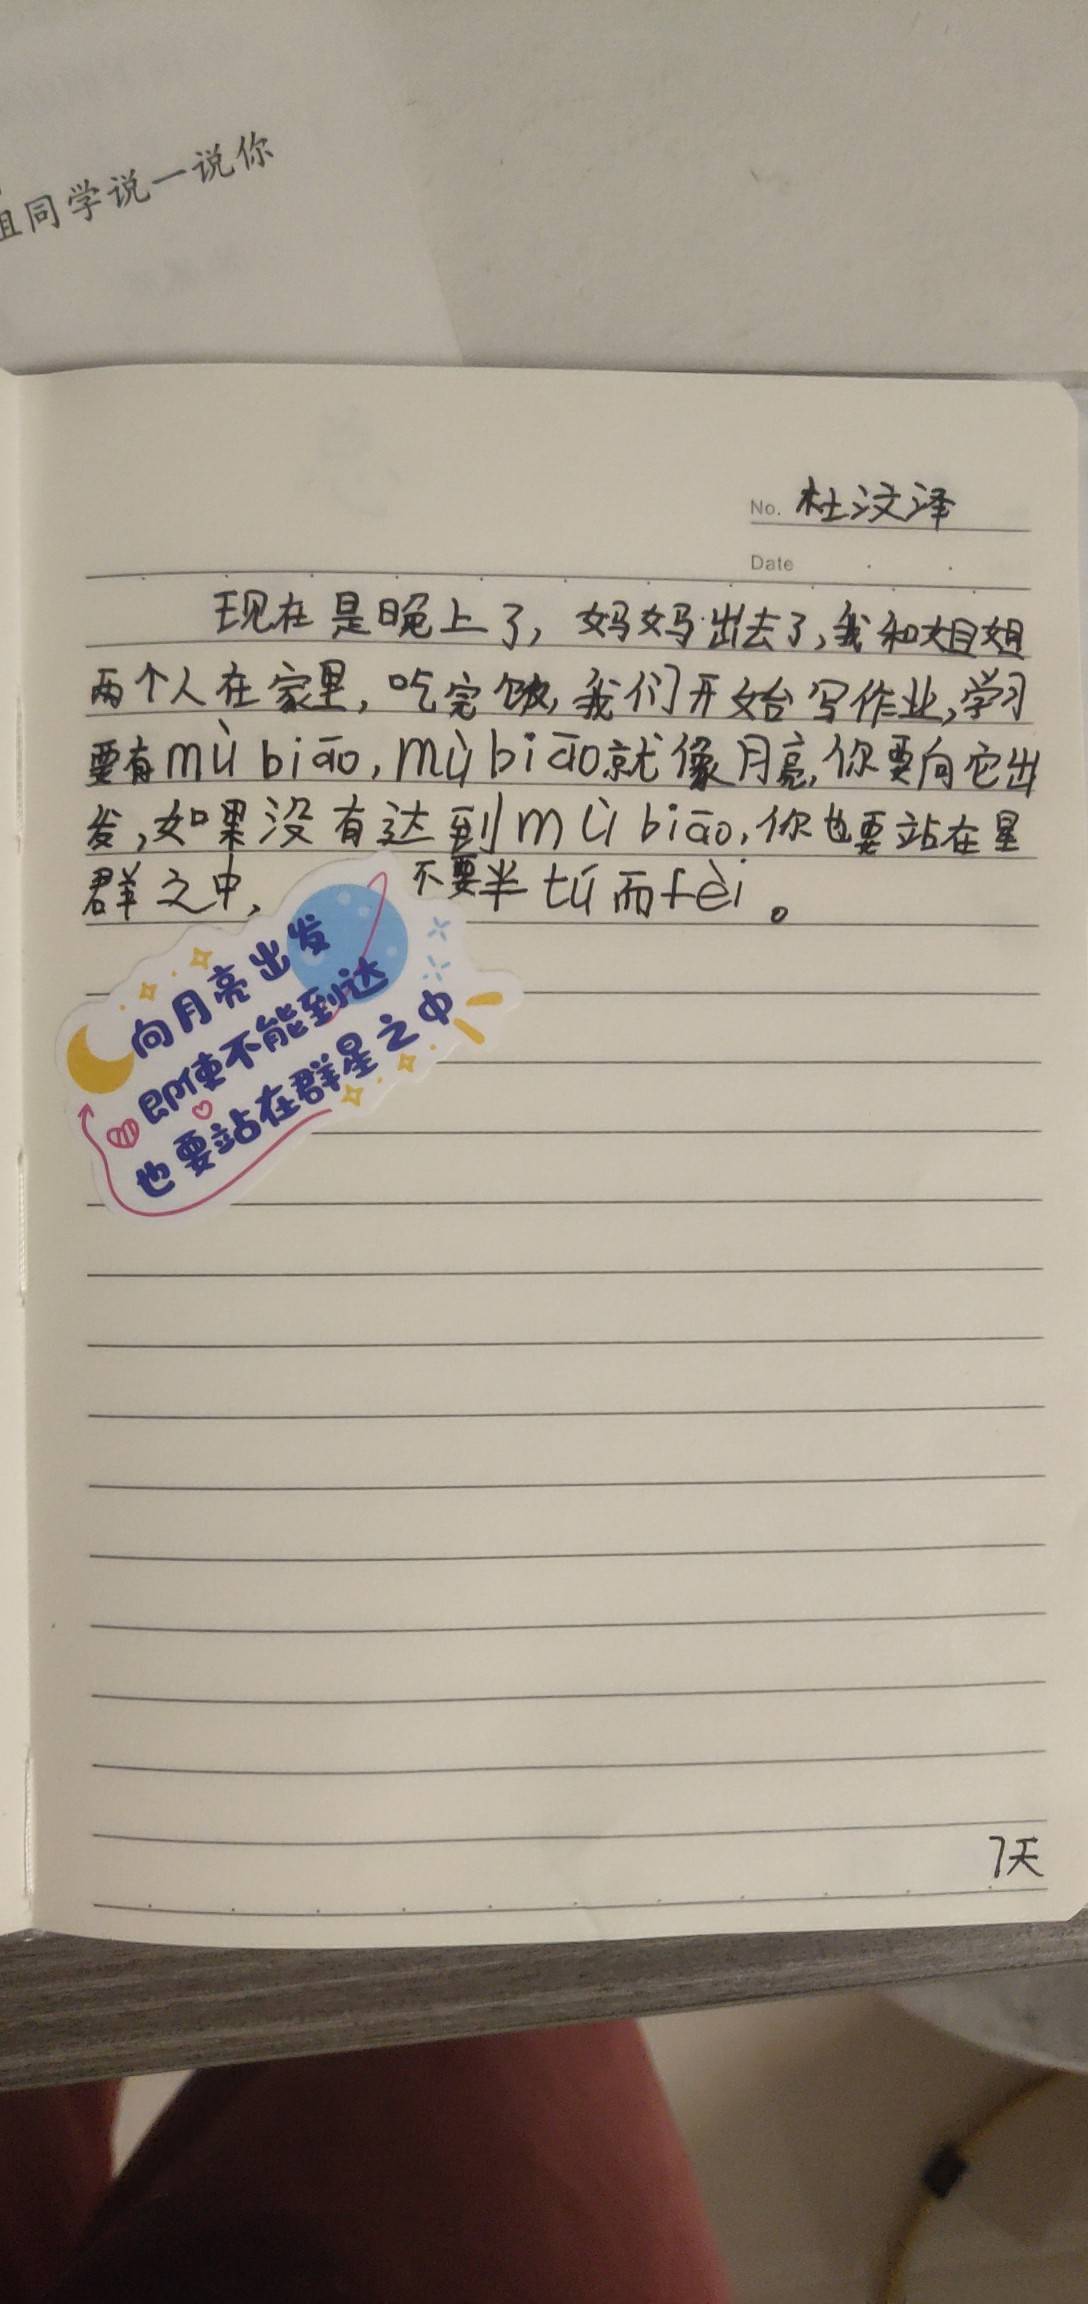 组同学说一说你
No. 杜汶泽
Date
现在是晚上了,妈妈出去了,我和姐姐
两个人在家里,吃完饭,我们开始写作业,学习
要有mù biāo,mù biāo就像月亮,你要向它出
发,如果没有达到mù biāo,你也要站在星
群之中,不要半tú而fèi。
向月亮出发
即使不能到达
也要站在群星之中
7天